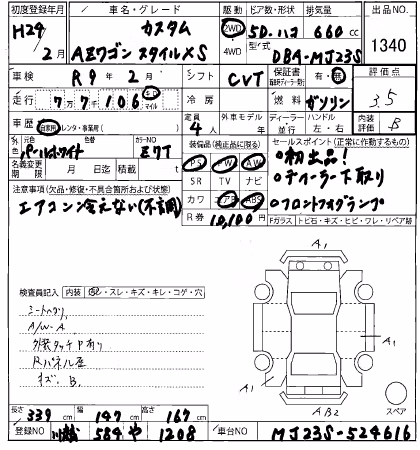 初度登録年月 車名・グレード 駆動 ドア数・形状 排気量 出品NO
H29年 2月 カスタム AZワゴン スタイルXS 2WD 4WD 5D.ハコ 660cc 1340
型式 DBA-MJ23S
車検 R9年 2月 シフト CVT 保証書 新車時・ディーラー用 有・無 評価点
走行 7万7千106 キロ マイル 冷房 燃料 ガソリン 3.5
車歴 自家用・レンタ・事業用( ) 定員 4人 外車モデル 年 ディーラー 並行 ハンドル 左・右 内装 B
元色 パールホワイト 色替 カラーNO Z7T 装備品(純正品に限る) セールスポイント(正常に作動するもの)
名義変更期限 月 日 積載 t PS PW AW 初出品!
注意事項(欠品・修復・不具合箇所および状態) SR TV ナビ ディーラー下取り
エアコン冷えない(不調) カワ AB ABS フロントフォグランプ
R券 10,100円 Fガラス トビ石・キズ・ヒビ・ワレ・リペア跡
A1
検査員記入 内装 スレ・キズ・キレ・コゲ・穴
シートヘタリ
A/W-A
外装タッチP有り A1 A1
Rパネル歪
キズ.B
AB2 スペア
長さ 339cm 幅 147cm 高さ 167cm
登録NO 584 や 1208 車台NO MJ23S-524616